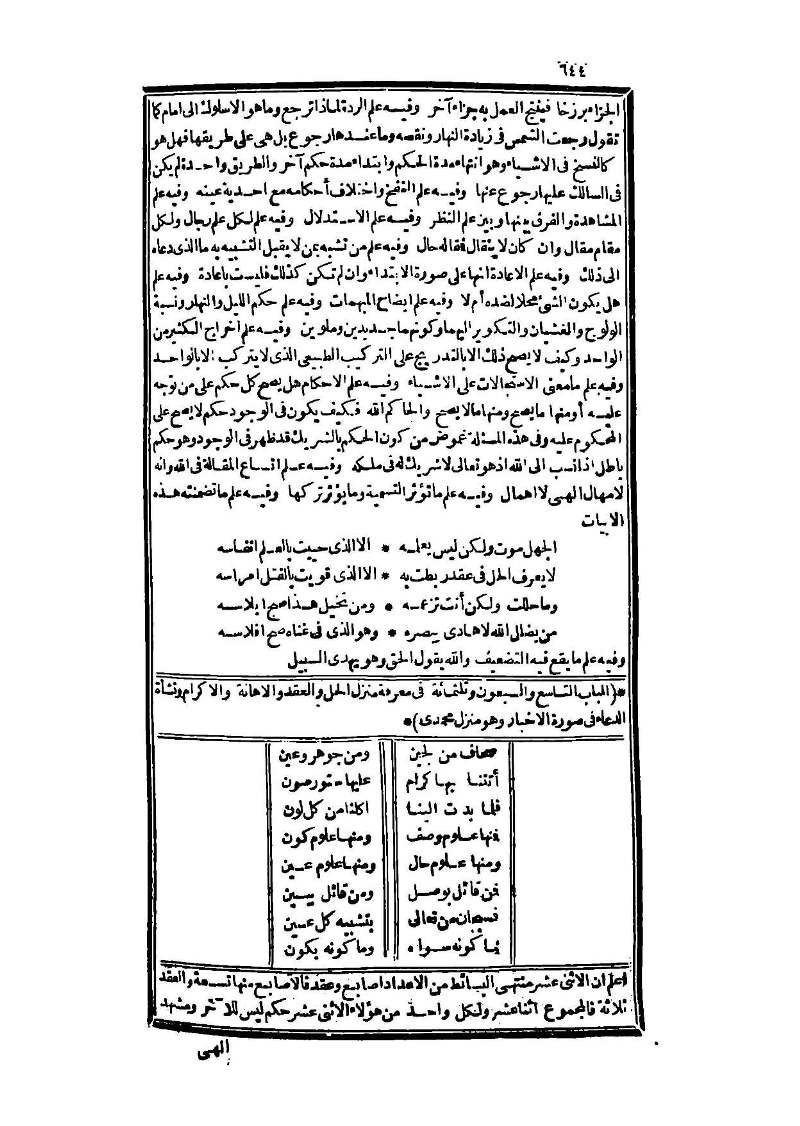 ٦٤٤
الجزاء برزخا فينتج العمل به جزاء آخر وفيه علم الردة لماذا ترجع وما هو الا سلوك الى امام كما
تقول رجعت الشمس فى زيادة النهار ونقصه وما عندها رجوع بل هى على طريقها فهل هو
كالنسخ فى الاشياء وهو انتهاء مدة الحكم وابتداء مدة حكم آخر والطريق واحدة لم يكن
فى السالك عليها رجوع عنها وفيه علم النفخ واختلاف أحكامه مع احدية عينه وفيه علم
المشاهدة والفرق بينها وبين علم النظر وفيه علم الاستدلال وفيه علم لكل علم رجال ولكل
مقام مقال وان كان لا ينقال فقاله حال وفيه علم من تشبه بمن لا يقبل التشبيه به ما الذى دعاه
الى ذلك وفيه علم الاعادة انها على صورة الابتداء وان لم تكن كذلك فليست باعادة وفيه علم
هل يكون الشئ محلا لضده أم لا وفيه علم ايضاح المبهمات وفيه علم حكم الليل والنهار ونسبة
الولوج والغشيان والتكوير اليهما وكونهما جديدين وملوين وفيه علم اخراج الكثير من
الواحد وكيف لا يصح ذلك الا بالتدريج على التركيب الطبيعى الذى لا يتركب الا بالواحد
وفيه علم ما معنى الاستحالات على الاشياء وفيه علم الاحكام هل يصح كل حكم على من توجه
عليه أو منها ما يصح ومنها ما لا يصح والحاكم الله فكيف يكون فى الوجود حكم لا يصح على
المحكوم عليه وفى هذه المسئلة غموض من كون الحكم بالشريك قد ظهر فى الوجود وهو حكم
باطل اذ انسب الى الله اذ هو تعالى لا شريك له فى ملكه وفيه علم اتساع المقالة فى الله وانه
لامهال الهى لا اهمال وفيه علم ما تؤثر التسمية وما يؤثر تركها وفيه علم ما تضمنته هذه
الابيات
الجهل موت ولكن ليس يعلمه * الا الذى حييت بالعلم انفاسه
لا يعرف الحل فى عقد ربطت به * الا الذى قويت بالفتل امراسه
وما حللت ولكن أنت تزعمه * ومن تخيل هذا صح ابلاسه
من يضلل الله لا هادى يبصره * وهو الذى فى غناه صح افلاسه
وفيه علم ما يقع فيه التضعيف والله يقول الحق وهو يهدى السبيل
*(الباب التاسع والسبعون وثلثمائة فى معرفة منزل الحل والعقد والاهانة والاكرام ونشأة
الدعاء فى صورة الاخبار وهو منزل محمدى)*
صحاف من لجين ومن جوهر وعين
أتتنا بها كرام عليها ستور صون
فلما بدت الينا اكلنا من كل لون
فمنها علوم وصف ومنها علوم كون
ومنها علوم حال ومنها علوم عين
فمن قائل بوصل ومن قائل ببين
فسبحان من تعالى بتشبيه كل عين
بما كونه سواء وما كونه يكون
اعلم ان الاثنى عشر منتهى البسائط من الاعداد اصابع وعقد فالاصابع منها تسعة والعقد
ثلاثة فالمجموع اثنا عشر ولكل واحد من هؤلاء الاثنى عشر حكم ليس للآخر ومشهد
الهى